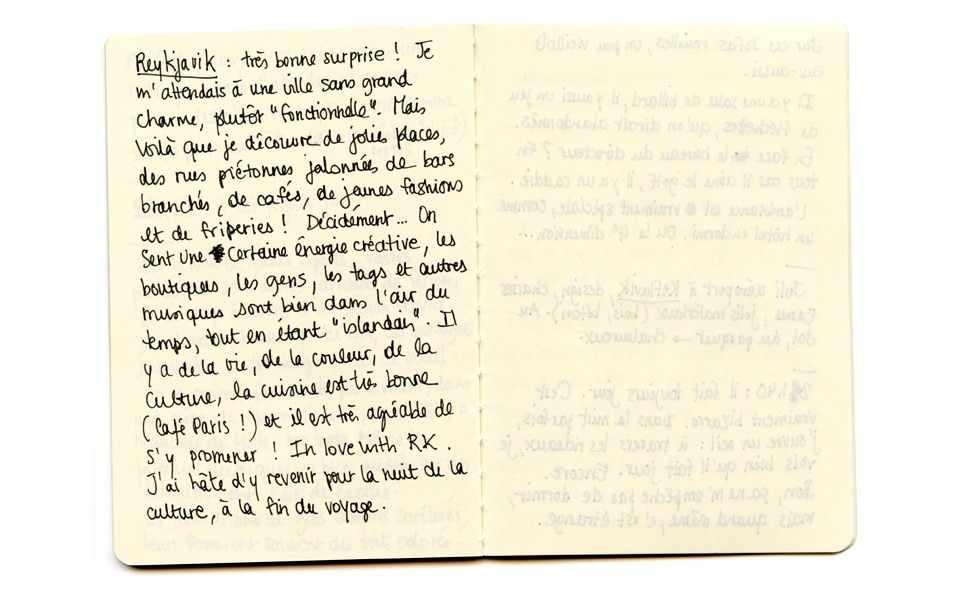 Reykjavik : très bonne surprise ! Je
m'attendais à une ville sans grand
charme, plutôt "fonctionnelle". Mais
voilà que je découvre de jolies places,
des rues piétonnes jalonnées de bars
branchés, de cafés, de jeunes fashions
et de friperies ! Décidément... On
sent une certaine énergie créative, les
boutiques, les gens, les tags et autres
musiques sont bien dans l'air du
temps, tout en étant "islandais". Il
y a de la vie, de la couleur, de la
culture, la cuisine est très bonne
(Café Paris !) et il est très agréable de
s'y promener ! In love with RK.
J'ai hâte d'y revenir pour la nuit de la
culture, à la fin du voyage.
sur ces sofas rouillés, un peu vieillots
eux-aussi.
Il y a une salle de billard, il y a aussi un jeu
de fléchettes, qu'on dirait abandonnés.
En face le bureau du directeur ? En
tous cas il aime le golf, il y a un caddie.
L'ambiance est vraiment spéciale, comme
un hôtel endormi. Ou la 4e dimension...
Joli aéroport à Keflavik, design, chaises
Eames, jolis matériaux (bois, béton). Au
sol, du parquet → chaleureux.
h40 : il fait toujours jour. C'est
vraiment bizarre. Dans la nuit parfois,
j'ouvre un œil : à travers les rideaux, je
vois bien qu'il fait jour. Encore.
Bon, ça ne m'empêche pas de dormir,
mais quand même, c'est étrange.